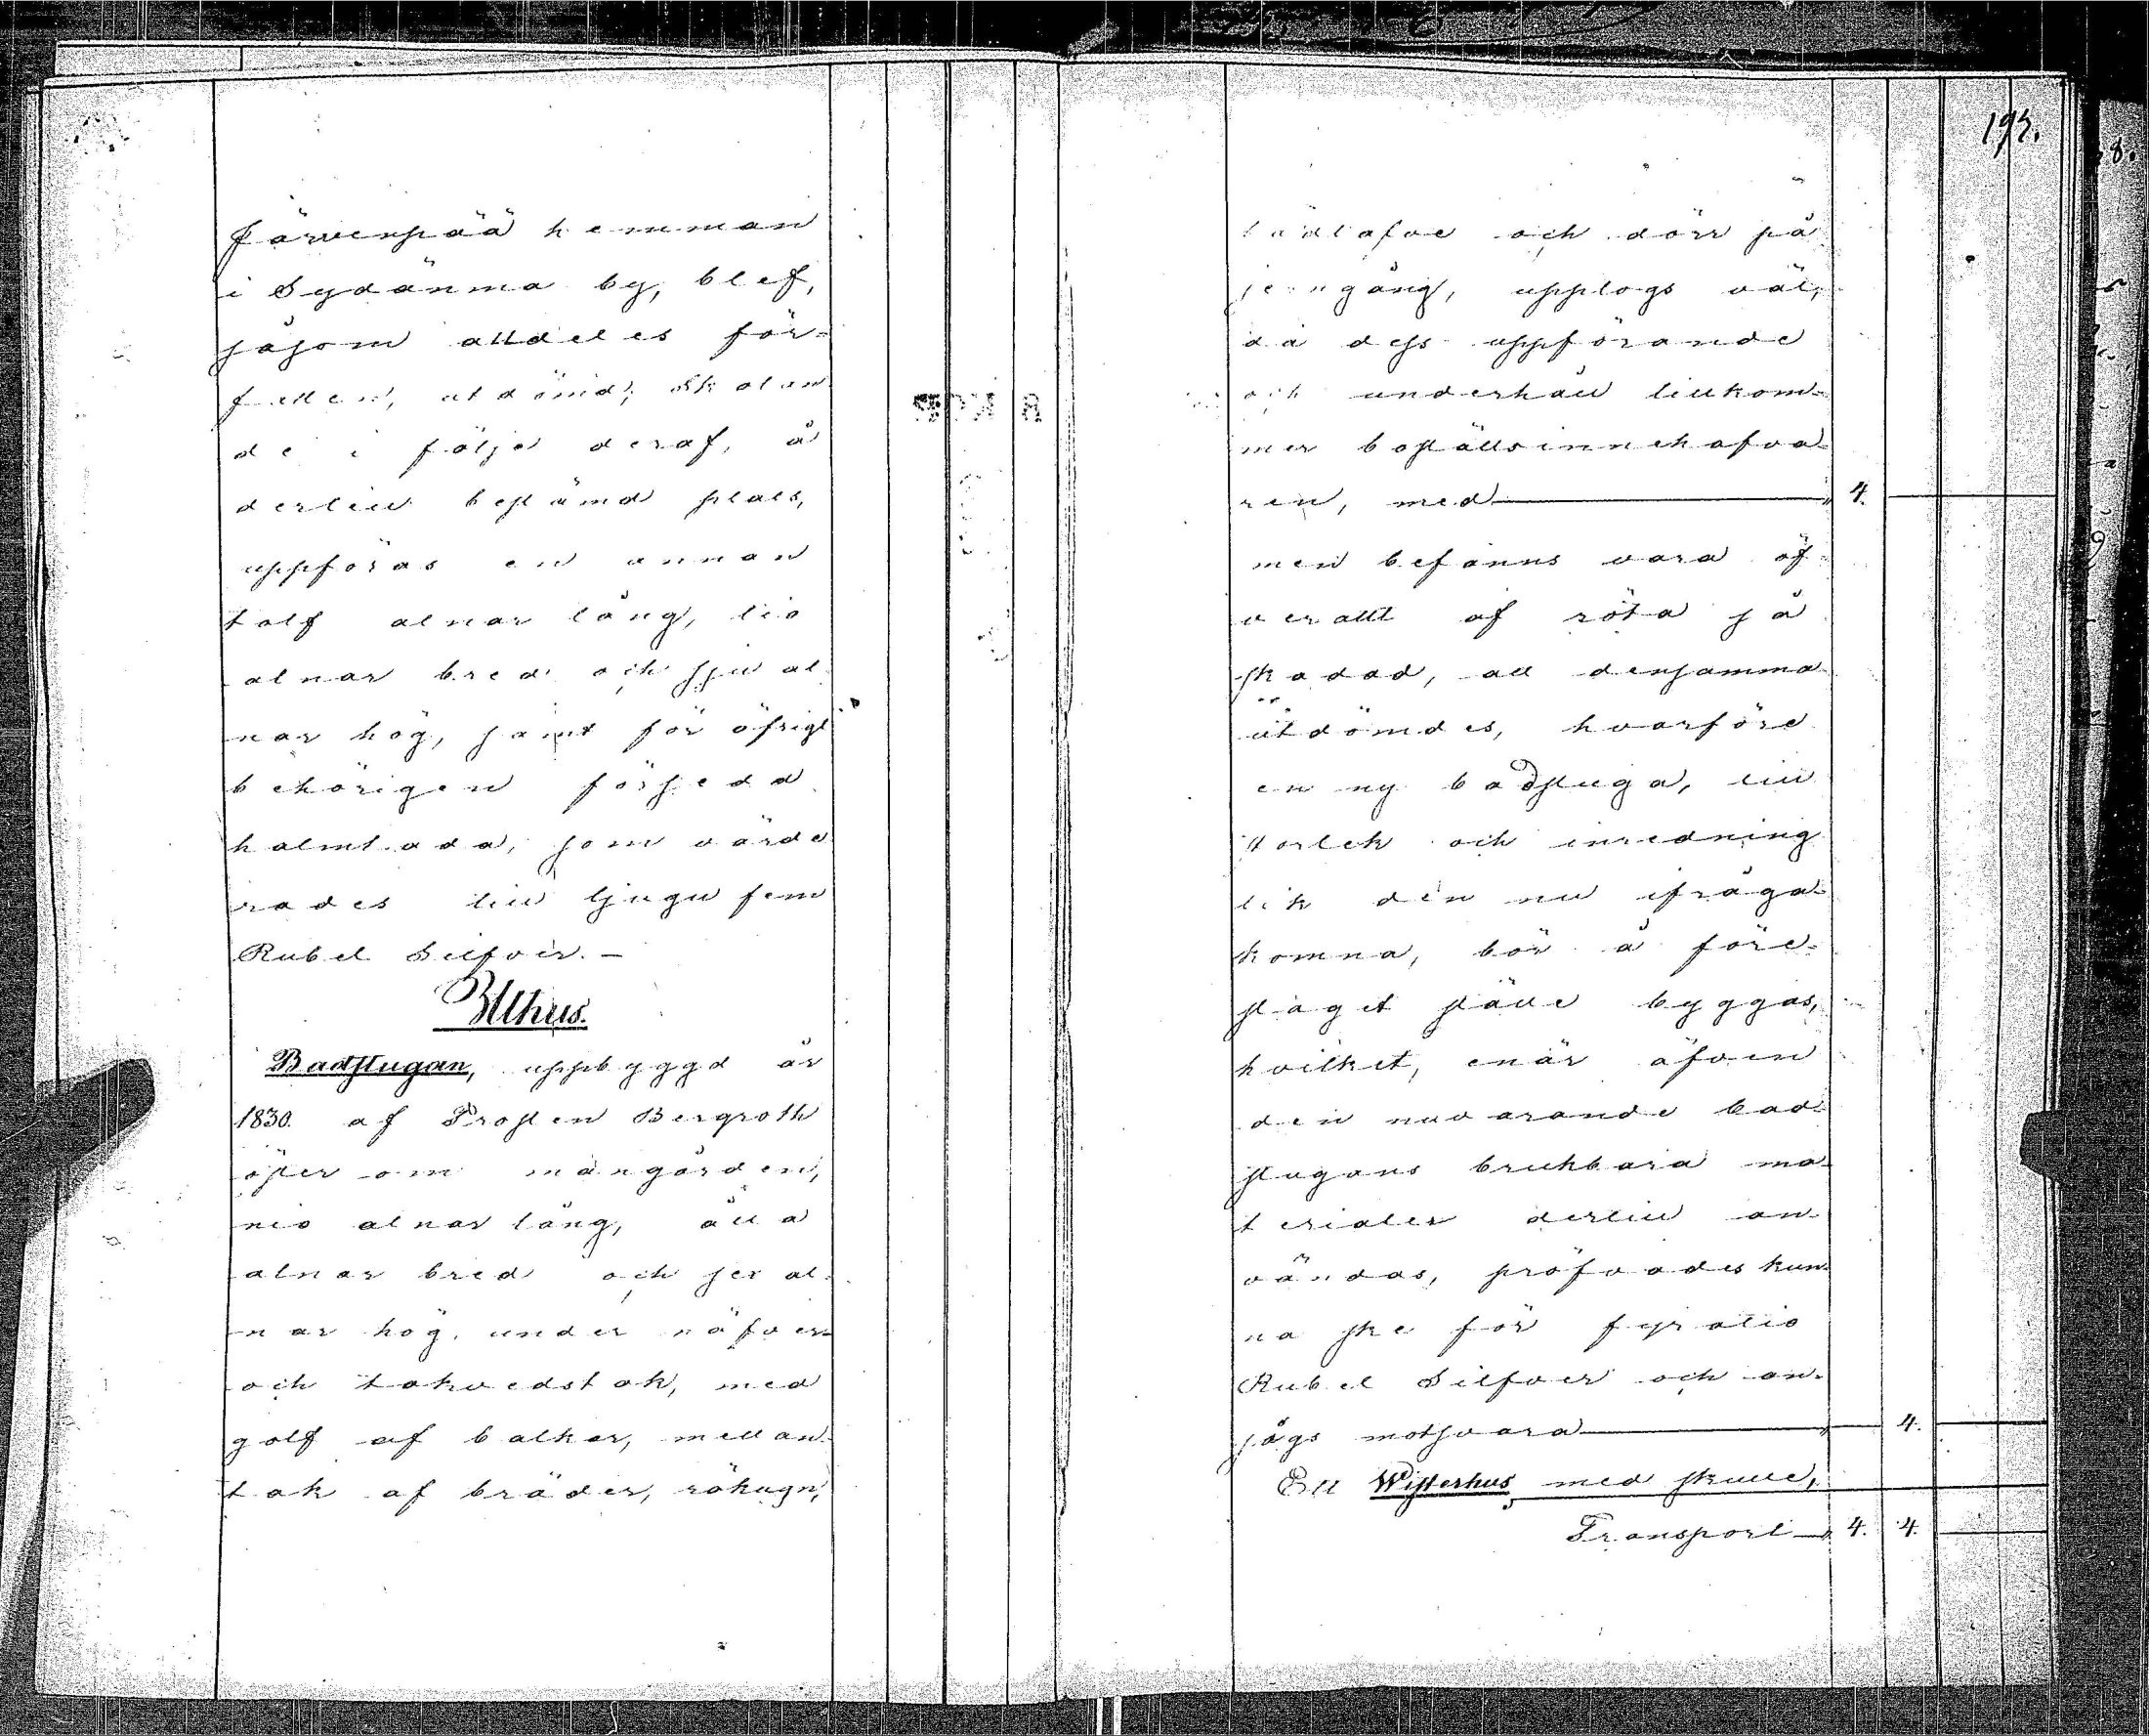 Järvenpää hemman
i Sydänma by, blef,
såsom alldeles för-
fallen, utdömd; skolan-
de i följe deraf, å
dertill bestämd plats,
uppföras en annan
tolf alnar lång, tio
alnar bred och sju al-
nar hög, samt för öfrigt
behörigen försedd
halmlada, som värde-
rades till tjugu fem
Rubel Silfver. –
Uthus.
Badstugan, uppbyggd år
1830. af Prosten Bergroth
öster om mangården,
nio alnar lång, åtta
alnar bred och sex al-
nar hög, under näfver
och takvedstak, med
golf af balkar, mellan-
tak af bräder, rökugn,
193.
badlafve och dörr på
jerngång, upptogs väl,
då dess uppförande
och underhåll tillkom-
mer boställsinnehafva-
ren, med " 4.
men befanns vara öf-
verallt af röta så
skadad, att densamma
utdömdes, hvarföre
en ny badstuga, till
storlek och inredning
lik den nu ifråga-
komna, bör å före-
slaget ställe byggas,
hvilket, enär äfven
den nuvarande bad-
stugans brukbara ma-
terialer dertill an-
vändas, pröfvades kun-
na ske för fyratio
Rubel Silfver och an-
sågs motsvara " 4.
Ett Wisterhus, med skulle,
Transport " 4. 4.